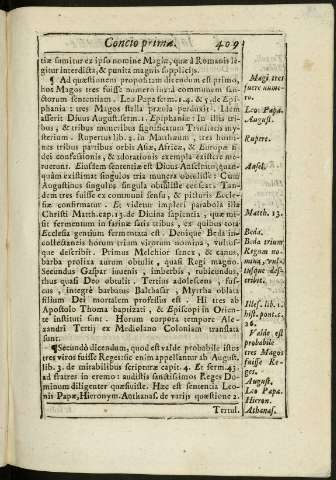 Concio primæ. 409
tiæ sumitur ex ipso nomine Magiæ, quæ à Romanis le-
gitur interdicta, & punita magnis supplicijs.
¶ Ad quæstionem propositam dicendum est primo,
hos Magos tres fuisse numero iuxta communem san-
ctorum sententiam. Leo Papa serm. 1. 4. & 5. de Epiph-
ania: tres Magos stella prævia perduxit. Idem
asserit Diuus August. serm. 1. Epiphaniæ: In istis tri-
bus, & tribus muneribus significatum Trinitatis my-
sterium. Rupertus lib. 2. in Matthæum, tres homi-
nes tribus partibus orbis Asiæ, Africæ, & Europæ fi-
dei confessionis, & adorationis exempla existere me-
ruerunt. Eiusdem sententiæ est Diuus Anselmus, quan-
quam existimat singulos tria munera obtulisse: Cum
Augustinus singulos singula obtulisse censeat: Tan-
dem tres fuisse ex communi sensu, & picturis Eccle-
siæ confirmatur. Et videtur impleri parabola illa
Christi Matth. cap. 13. de Diuina sapientia, quæ mi-
sit fermentum in farinæ satis tribus, ex quibus tota
Ecclesia gentium fermentata est. Denique Beda in
collectaneis horum trium virorum nomina, vultus-
que describit. Primus Melchior senex, & canus,
barba prolixa aurum obtulit, quasi Regi magno.
Secundus Gaspar iuuenis, imberbis, rubicundus,
thus quasi Deo obtulit. Tertius adolescens, fus-
cus, integrè barbatus Balthasar, Myrrha oblata
filium Dei mortalem professus est. Hi tres ab
Apostolo Thoma baptizati, & Episcopi in Orien-
te instituti sunt. Horum corpora tempore Ale-
xandri Tertij ex Mediolano Coloniam translata
sunt.
¶ Secundò dicendum, quod est valde probabile istos
tres viros fuisse Reges: sic enim appellantur ab August.
lib. 3. de mirabilibus scripturæ capit. 4. Et serm. 43.
ad fratres in eremo: audistis sanctissimos Reges Do-
minum diligenter quæsiuisse. Hæc est sententia Leo-
nis Papæ, Hieronym. Anthanas. de varijs quæstione 2.
Tertul.
Magi tres
fuere nume-
ro.
Leo Papa.
August.
Rupert.
Ansel.
Matth. 13.
Beda.
Beda trium
Regum no-
mina, vul-
tusque des-
cribit.
Illes. lib. 1.
hist. pont. c.
26.
Valde est
probabile
tres Magos
fuisse Re-
ges.
August.
Leo Papa.
Hieron.
Athanas.